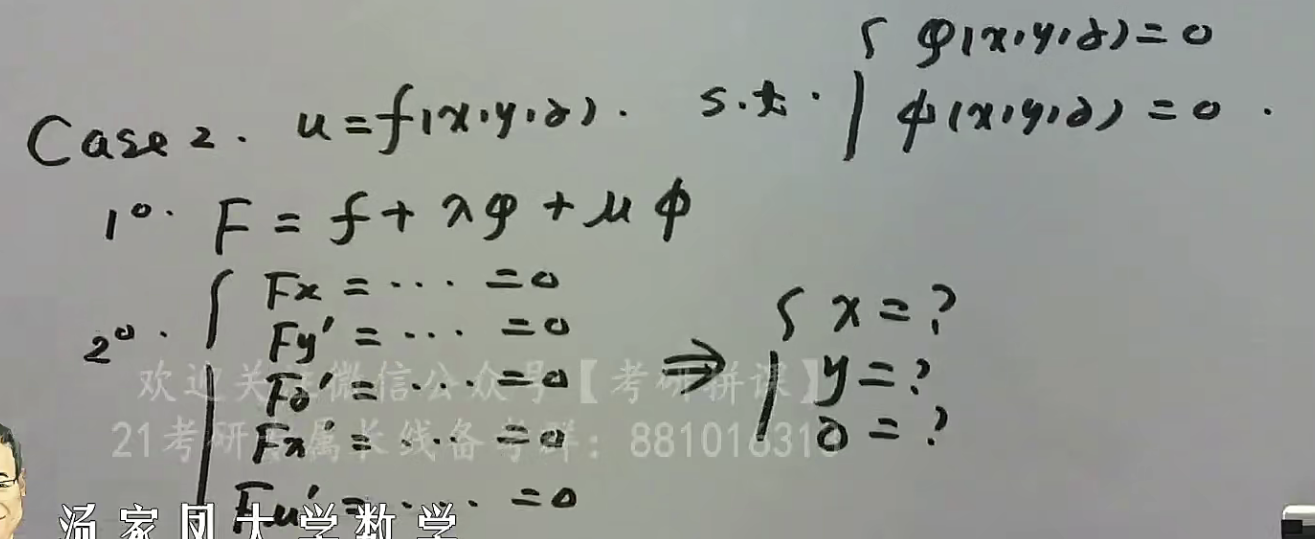 Case 2. u = f(x,y,z). s.t. { φ(x,y,z) = 0
ψ(x,y,z) = 0.
1°. F = f + λφ + μψ
2°. { Fx = ··· = 0
Fy' = ··· = 0
Fz' = ··· = 0
Fλ' = ··· = 0
Fμ' = ··· = 0
⇒ { x = ?
y = ?
z = ?
欢迎关注微信公众号【考研拼课】
21考研专属长线备考群：881016313
汤家凤大学数学